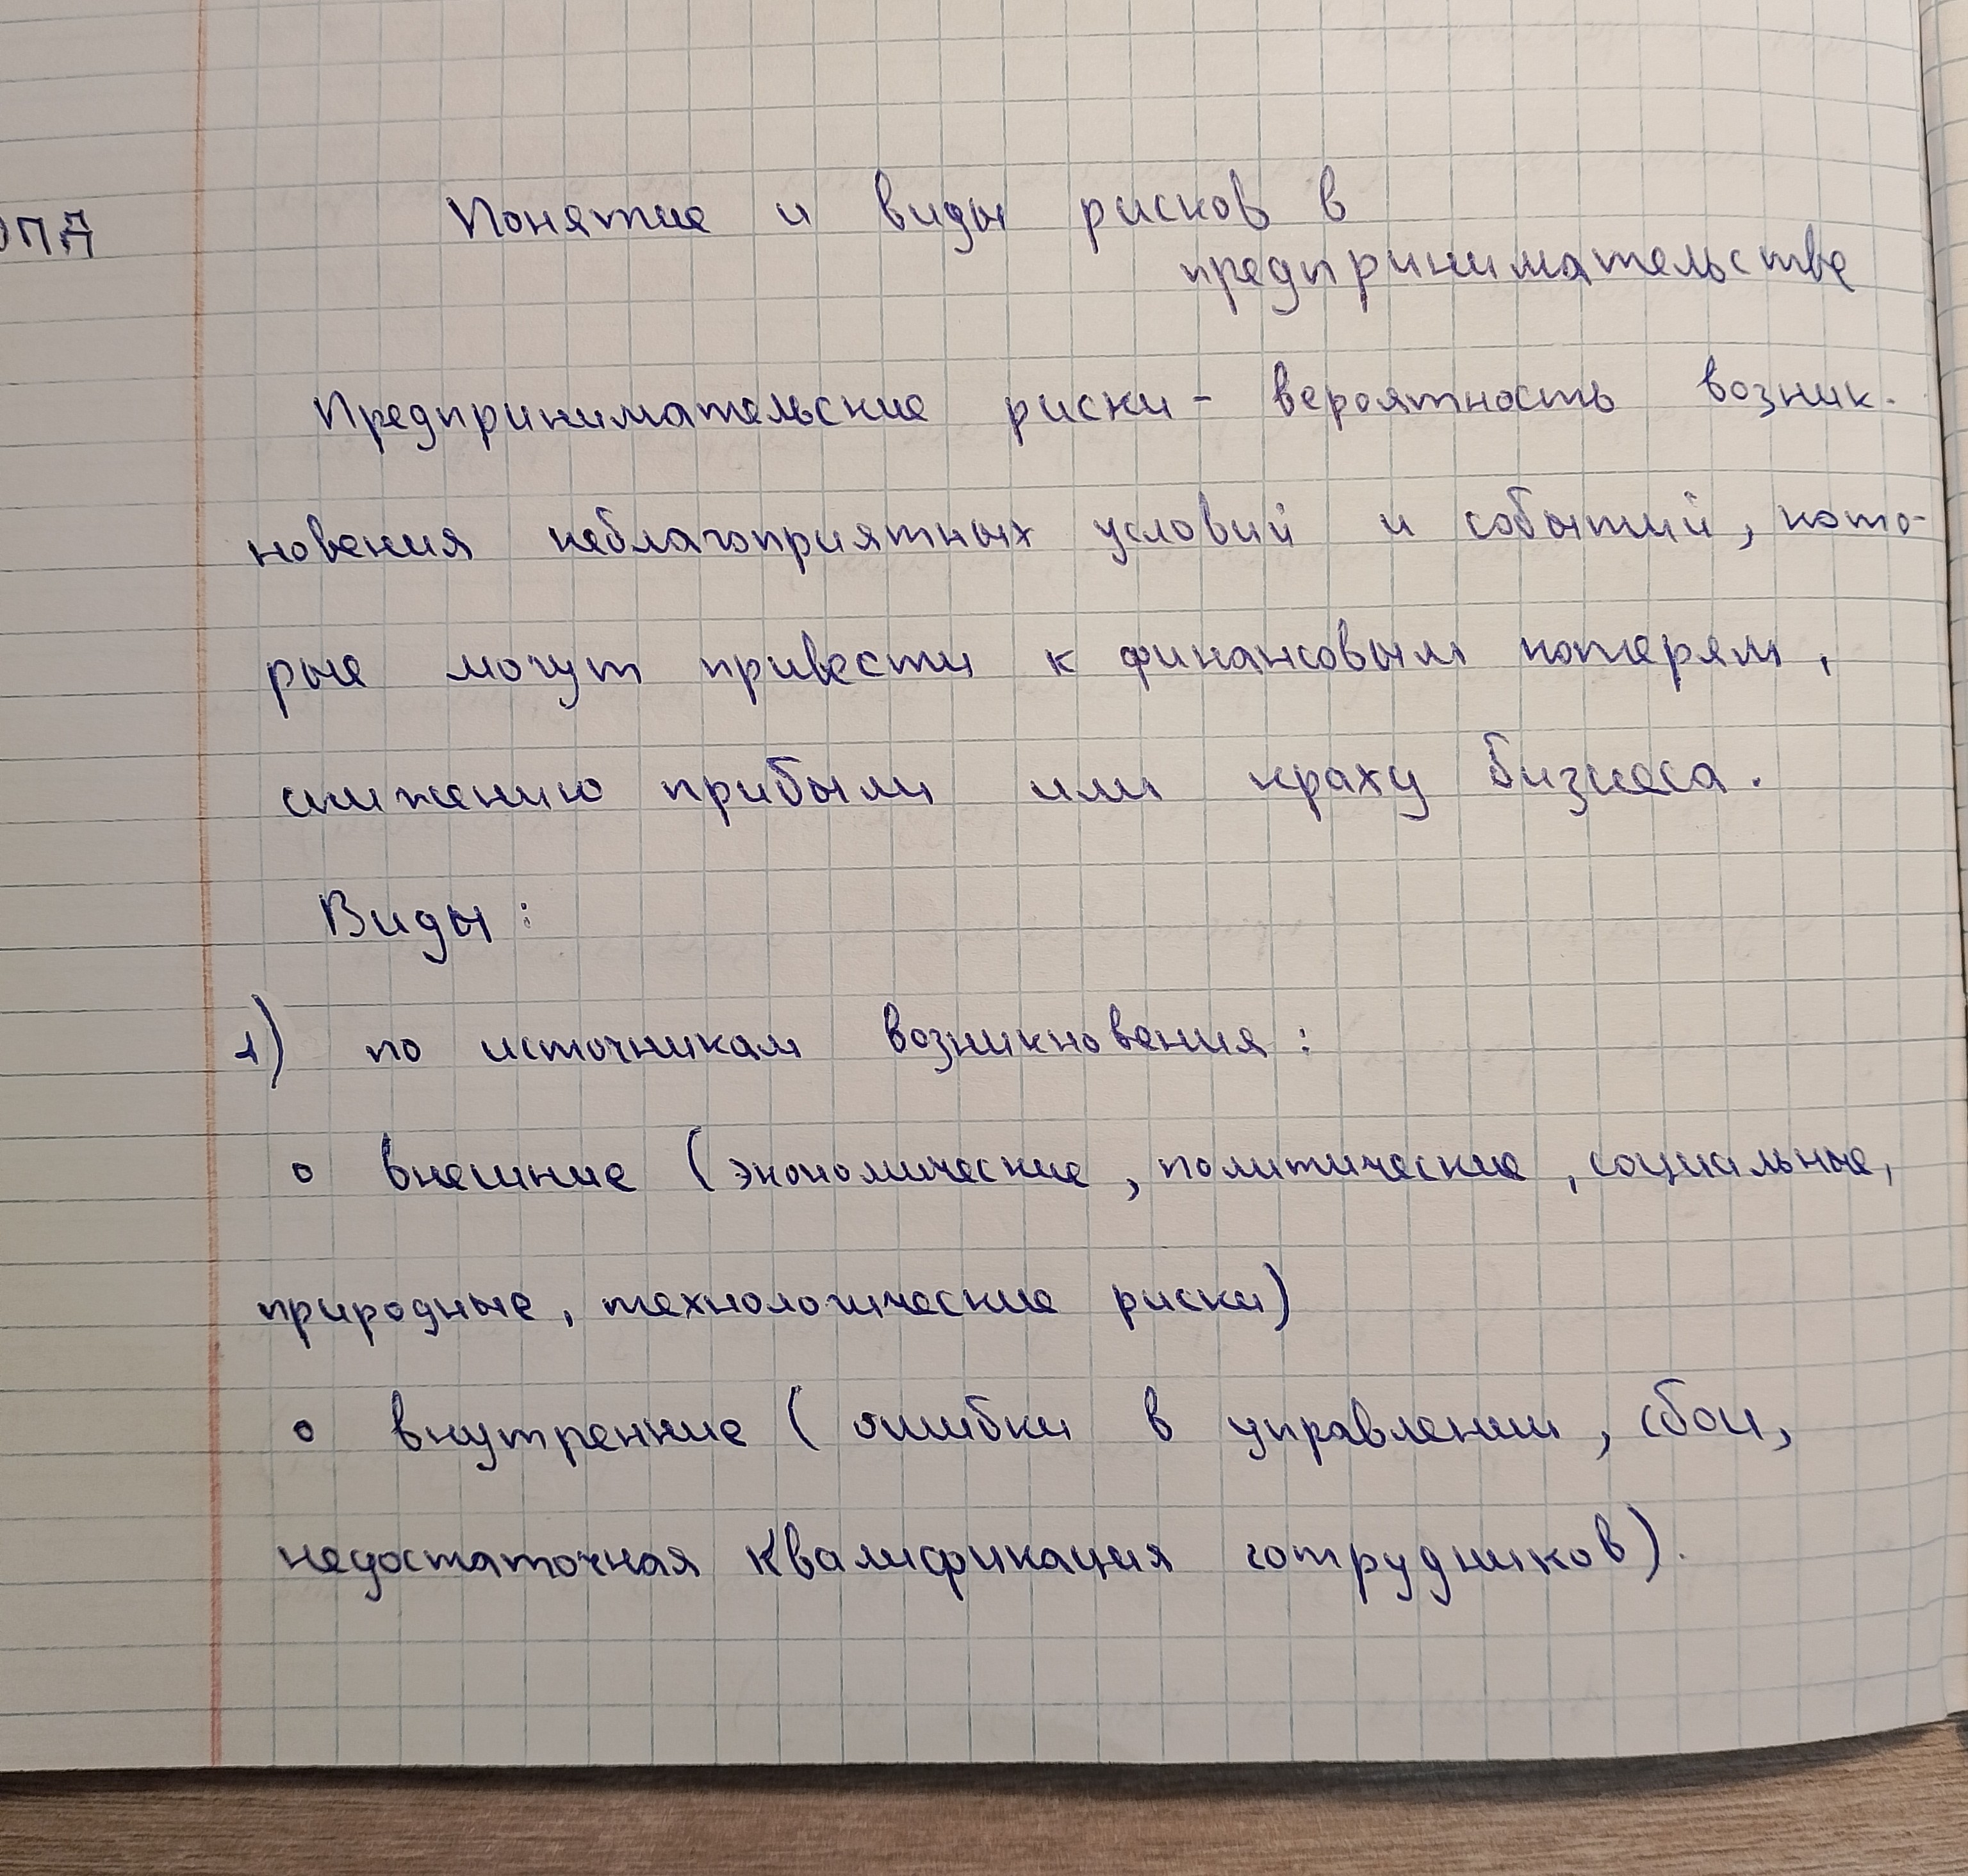 ОПД
Понятие и виды рисков в
предпринимательстве
Предпринимательские риски - вероятность возник-
новения неблагоприятных условий и событий, кото-
рые могут привести к финансовым потерям,
снижению прибыли или краху бизнеса.
Виды:
1) по источникам возникновения:
о внешние (экономические, политические, социальные,
природные, технологические риски)
о внутренние (ошибки в управлении, сбои,
недостаточная квалификация сотрудников).